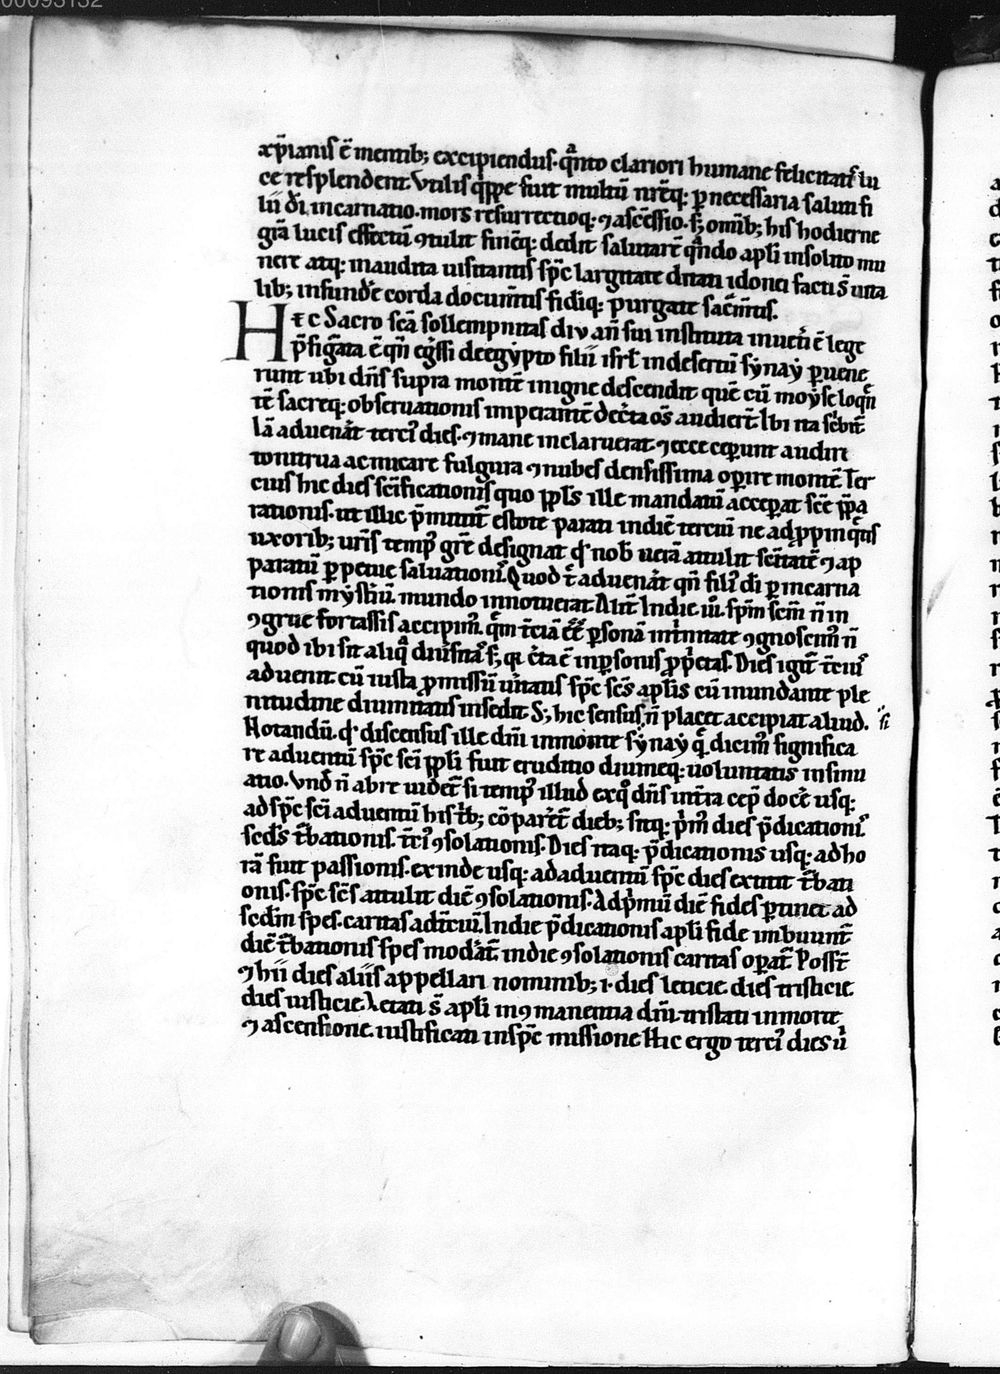 00093132
xp̄ianis ē mentib; excipiendus. qͣnto clariori humane felicitatiſ lu
ce resplendent. Vtilis q̄ppe fuit multū nr̄eq: ꝑnecessaria saluti fi
lii dī. incarnatio. mors resurrectioq: ⁊ ascēssio. s; omīb; his hodierne
gr̄a lucis effectū ꝯtulit finēq: dedit salutarē qͣndo apl̄i insolito mu
nere atq: inaudita uisitantis sp̄c largitate ditati idonei facti s̄ uita
lib; infundēe corda documn̄tis fidīq: purgate sacm̄tis.
Hec Sacro sc̄a sollempnitas diu an̄ sui instituta inueti ē lege
p̄figͣata ē qn̄ egͥssi deegypto filii isrl̄ indesertū synay ꝑuene
runt ubi dn̄s supra montē inigne descendit quē cū moyse loqn̄
tē sacreq: obseruationis imperantē decͥta oſ̄ audierт̄. Ibi ita scͥbit̄
Iā aduenāt tercīꝰ dies. ⁊ mane inclaruerat ⁊ ecce ceꝑunt audiri
tonitrua ac micare fulgura ⁊ nubes densissima oꝑire montē. Ter
cius hic dies sc̄ificationis quo ppl̄s ille mandatū acceꝑat sēe p̄pa
rationis. ut illic p̄munit̄ estote parati indiē terciū ne adꝓpinqͣtis
uxorib; ur̄is tempꝰ gr̄e designat qͥ nob̄ uerā attulit sc̄itatē ⁊ ap
paratū ꝑpetue saluationiſ. Quod t̄c aduenāt qn̄ filiꝰ dī ꝑ incarna
tionis mysͥtiū mundo innotuerat. Alit̄ Indie iii. sp̄m sc̄m n̄ in
ꝯgrue fortassis accipimꝰ. qͣm t̄ciā ēē ꝑsonā intͥnitate ꝯgnoscimꝰ n̄
quod ibi sit aliqͣ diuͥsitāſ s; qͥ cͥta ē inꝑsonis ꝓpͥetas. Dies igit̄ t̄ciꝰ
aduenit cū iusta ꝓmissū uͥitatis sp̄c sc̄s apl̄is cū inundante ple
nitudine diuinitatis insedit. S; hic sensus n̄ placet accipiat aliud.
Notandū. qͥ discensus ille dn̄i inmonte synay qͣ dicimꝰ significa
re aduentū sp̄c sc̄i ppl̄i fuit eruditio diuineq: uoluntatis insinu
atio. Vnd̄ n̄ abre uidet̄ si tempꝰ illud exqͦ dn̄s int̄ra cep̄ docēe usq:
ad sp̄c sc̄i aduentū his t̄b; cōparēt̄ dieb; sitq: pͥmꝰ dies p̄dicationiſ
sed̄s t̄bationis. t̄ciꝰ ꝯsolationis. Dies itaq: p̄dicationis usq: adho
rā fuit passionis. exinde usq: adaduentū sp̄c dies extitit t̄bati
onis. sp̄c sc̄s attulit diē ꝯsolationis. Adpͥmū diē fides ꝑtinet ad
sed̄m spes. caritas adt̄ciū. Indie p̄dicationis apl̄i fide imbuunt̄
diē t̄bationis spes modāt̄. indie ꝯsolationis caritas oꝑat̄. Posst̄
⁊ hii dies aliis appellari nominib; .i. dies leticie dies tristicie
dies iusticie. Letati s̄ apl̄i inꝯmanentia dn̄i. tristati inmorte
⁊ ascensione. iustificati insp̄c missione. Hic ergo terciꝰ dies uͥ